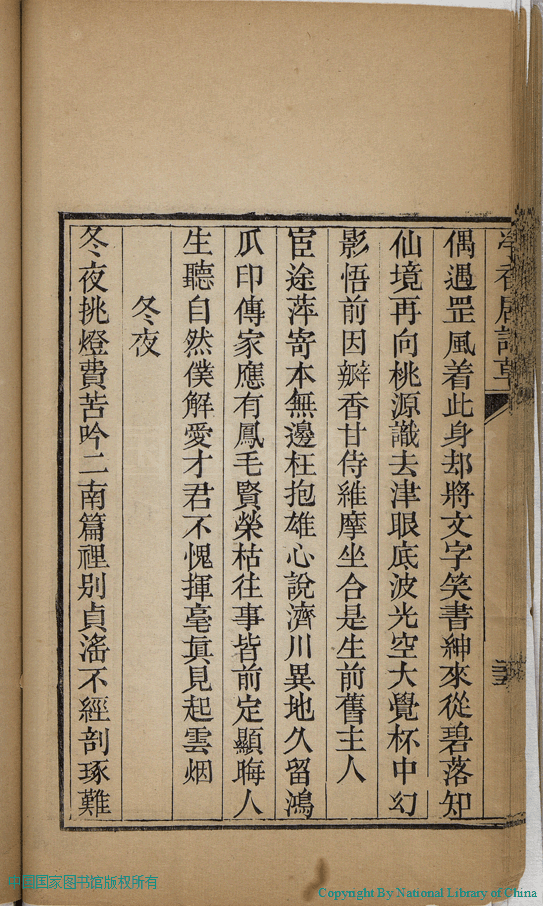 偶遇罡風着此身却將文字笑書紳來從碧落知
仙境再向桃源識去津眼底波光空大覺杯中幻
影悟前因瓣香甘侍維摩坐合是生前舊主人
宦途萍寄本無邊枉抱雄心說濟川異地久留鴻
爪印傳家應有鳳毛賢榮枯往事皆前定顯晦人
生聽自然僕解愛才君不愧揮毫眞見起雲烟
冬夜
冬夜挑燈費苦吟二南篇裡别貞滛不經剖琢難
中国国家图书馆版权所有
Copyright By National Library of China